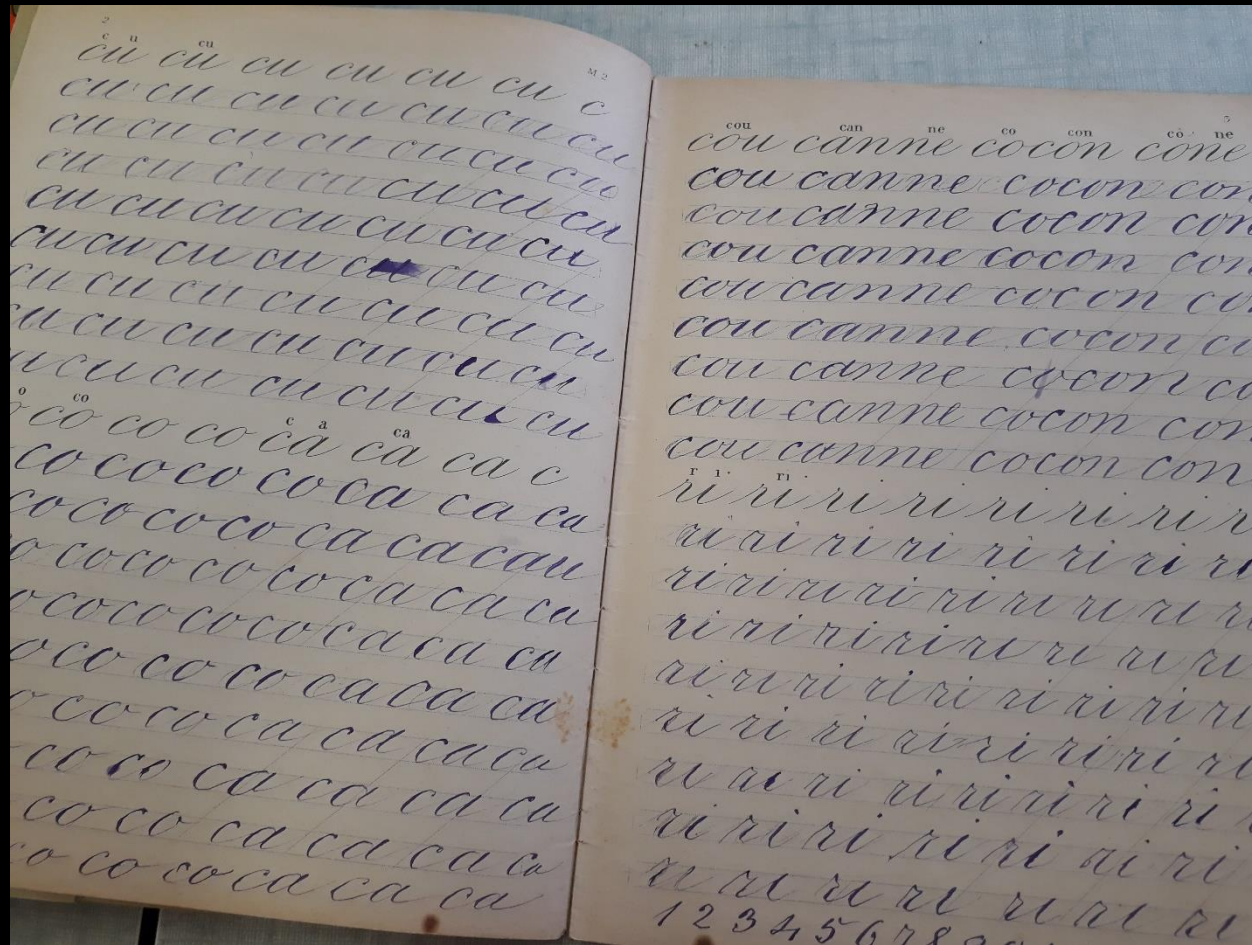 2
c u cu
cu cu cu cu cu cu c
M. 2
cu cu cu cu cu cu cu
cu cu cu cu cu cu cu
cu cu cu cu cu cu cu
cu cu cu cu cu cu cu
cu cu cu cu cu cu cu
cu cu cu cu cu cu cu
cu cu cu cu cu cu cu
cu cu cu cu cu cu
o co c a ca
co co co ca ca ca c
co co co co ca ca ca
co co co co ca ca cau
co co co co ca ca ca
co co co co ca ca ca
co co co ca ca ca
co co ca ca ca ca
co co ca ca ca ca
co co ca ca ca ca
co co co ca ca ca
cou can ne co con cô ne
cou canne cocon cône
cou canne cocon con
cou canne cocon con
cou canne cocon con
cou canne cocon co
cou canne cocon co
cou canne cocon co
cou canne cocon con
cou canne cocon con
r i ri
ri ri ri ri ri ri ri r
ri ri ri ri ri ri ri ri
ri ri ri ri ri ri ri ri
ri ri ri ri ri ri ri ri
ri ri ri ri ri ri ri ri
ri ri ri ri ri ri ri ri
ri ri ri ri ri ri ri ri
ri ri ri ri ri ri ri
ri ri ri ri ri ri ri
1 2 3 4 5 6 7 8 9